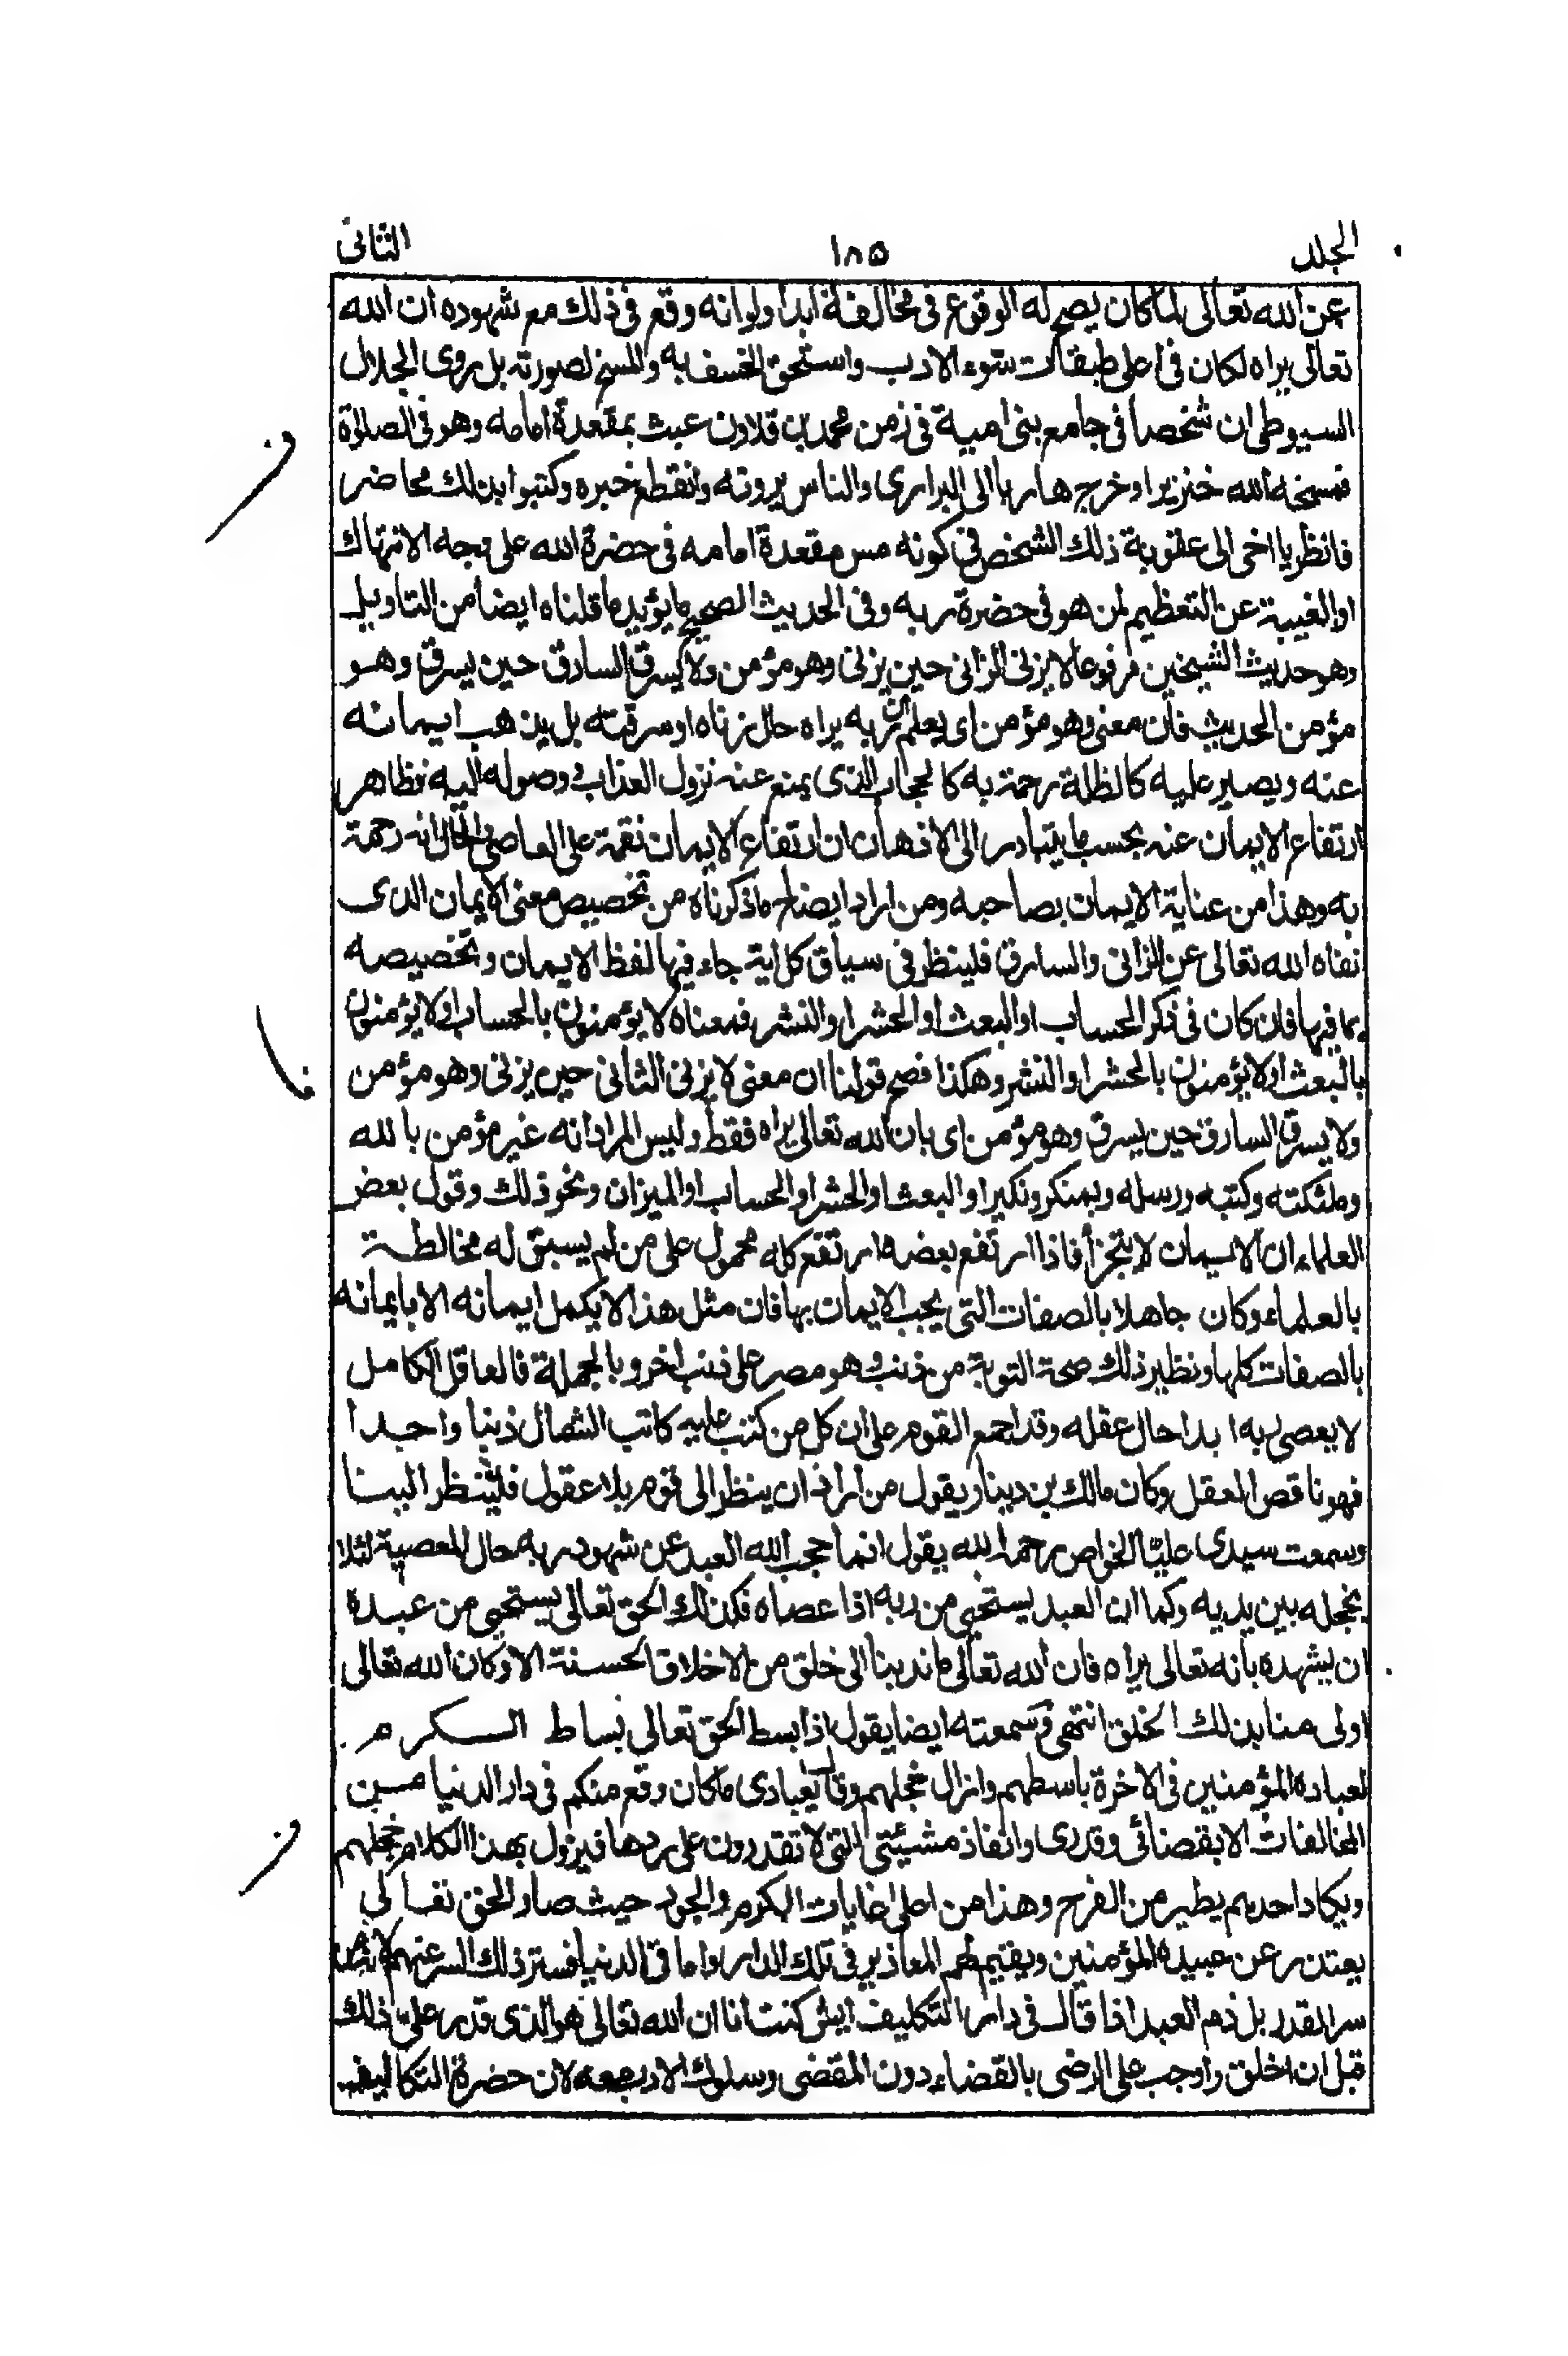 الجلد ١٨٥ الثانى
عن الله تعالى لما كان يصح له الوقوع فى مخالفة ابدا ولو انه وقع فى ذلك مع شهوده ان الله
تعالى يراه لكان فى اعلى طبقات سوء الادب واستحق الخسف به والمسخ لصورته بل روى الجلال
السيوطى ان شخصا فى جامع بنى امية فى زمن محمد بن قلاون عبث بمقعدة امامه وهو فى الصلوة
فمسخه الله خنزيرا وخرج هاربا الى البرارى والناس يرونه وانقطع خبره وكتبوا بذلك محاضر
فانظر يا اخى الى عقوبة ذلك الشخص فى كونه مس مقعدة امامه فى حضرة الله على وجه الانتهاك
او الغيبة عن التعظيم لمن هو فى حضرة ربه وفى الحديث الصحيح ما يؤيد ما قلناه ايضا من التاويل
وهو حديث الشيخين مرفوعا لا يزنى الزانى حين يزنى وهو مؤمن ولا يسرق السارق حين يسرق وهو
مؤمن الحديث فان معنى وهو مؤمن اى يعلم ان ربه يراه حال زناه او سرقته بل يذهب ايمانه
عنه ويصير عليه كالظلة رحمة به كالحجاب الذى يمنع عنه نزول العذاب ووصوله اليه فظاهر
ارتفاع الايمان عنه بحسب ما يتبادر الى الاذهان ان ارتفاع الايمان نقمة على العاصى والحال انه رحمة
به وهذا من عناية الايمان بصاحبه ومن اراد ايضاح ما ذكرناه من تخصيص معنى الايمان الذى
نفاه الله تعالى عن الزانى والسارق فلينظر فى سياق كل اية جاء فيها لفظ الايمان وتخصيصه
بما فيها فان كان فى ذكر الحساب او البعث او الحشر او النشر فمعناه لا يؤمنون بالحساب او لا يؤمنون
بالبعث او لا يؤمنون بالحشر او النشر وهكذا فصح قولنا ان معنى لا يزنى الثانى حين يزنى وهو مؤمن
ولا يسرق السارق حين يسرق وهو مؤمن اى بان الله تعالى يراه فقط وليس المراد انه غير مؤمن بالله
وملئكته وكتبه ورسله وبمنكر ونكير او البعث او الحشر او الحساب او الميزان ونحو ذلك وقول بعض
العلماء ان الايمان لا يتجزأ فاذا ارتفع بعضه ارتفع كله محمول على من لم يسبق له مخالطة
بالعلماء وكان جاهلا بالصفات التى يجب الايمان بها فان مثل هذا لا يكمل ايمانه الا بايمانه
بالصفات كلها ونظير ذلك صحة التوبة من ذنب وهو مصر على ذنب اخر وبالجملة فالعاقل الكامل
لا يعصى ربه ابدا حال عقله وقد اجمع القوم على ان كل من كتب عليه كاتب الشمال ذنبا واحدا
فهو ناقص العقل وكان مالك بن دينار يقول من اراد ان ينظر الى قوم بلا عقول فلينظر الينا
وسمعت سيدى عليّا الخواص رحمه الله يقول انما حجب الله العبد عن شهود ربه حال المعصية لئلا
يخجله بين يديه وكما ان العبد يستحيى من ربه اذا عصاه فكذلك الحق تعالى يستحيى من عبده
ان يشهده بانه تعالى يراه فان الله تعالى ما ندبنا الى خلق من الاخلاق الحسنة الا وكان الله تعالى
اولى منا بذلك الخلق انتهى وسمعته ايضا يقول اذا بسط الحق تعالى بساط الكرم
لعباده المؤمنين فى الاخرة باسطهم وازال خجلهم وقال يعبادى ما كان وقع منكم فى دار الدنيا من
المخالفات الا بقضائى وقدرى وانفاذ مشيئتى التى لا تقدرون على ردها فيزول بهذا الكلام خجلهم
ويكاد احدهم يطير من الفرح وهذا من اعلى غايات الكرم والجود حيث صار الحق تعالى
يعتذر عن عبيده المؤمنين ويقيم لهم المعاذير فى تلك الدار واما فى الدنيا فستر ذلك السر عنهم
سر القدر بل ذم العبد اذا قال فى دار التكليف ايش كنت انا ان الله تعالى هو الذى قدر على ذلك
قبل ان اخلق واوجب على الرضى بالقضاء دون المقضى وسلوك الادب معه لان حضرة التكاليف